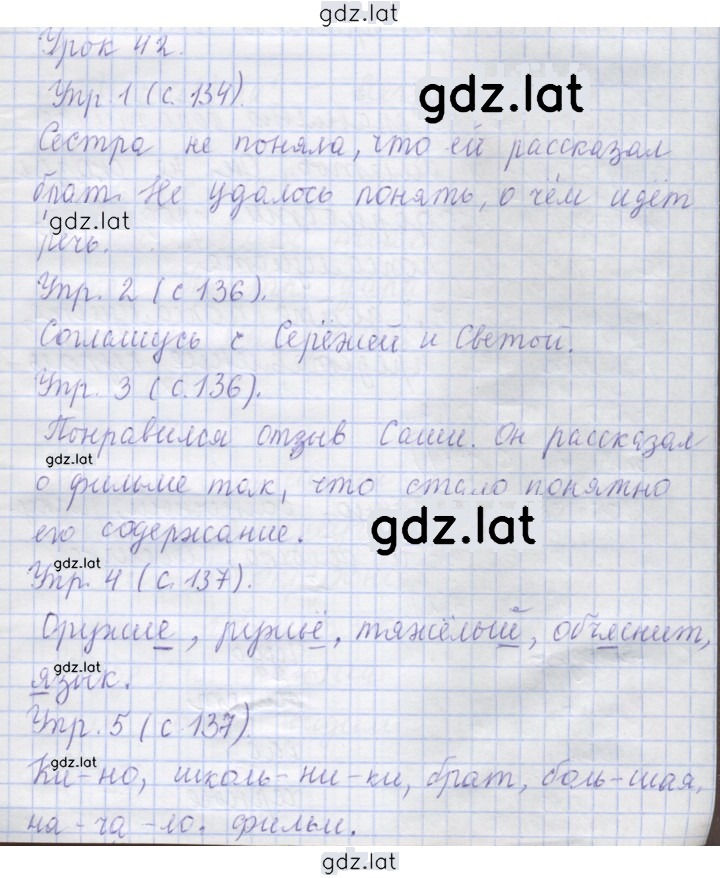 gdz.lat
Урок 42.
Упр. 1 (с. 134).
gdz.lat
Сестра не поняла, что ей рассказал
брат. Не удалось понять, о чём идёт
gdz.lat
речь.
Упр. 2 (с 136).
Соглашусь с Серёжей и Светой.
Упр. 3 (с. 136).
Понравился отзыв Саши. Он рассказал
gdz.lat
о фильме так, что стало понятно
его содержание.
gdz.lat
gdz.lat
Упр. 4 (с. 137).
Оружие, ружьё, тяжёлый, объяснит,
gdz.lat
язык.
Упр. 5 (с 137).
gdz.lat
Ки-но, школь-ни-ки, брат, боль-шая,
на-ча-ло. фильм.
gdz.lat